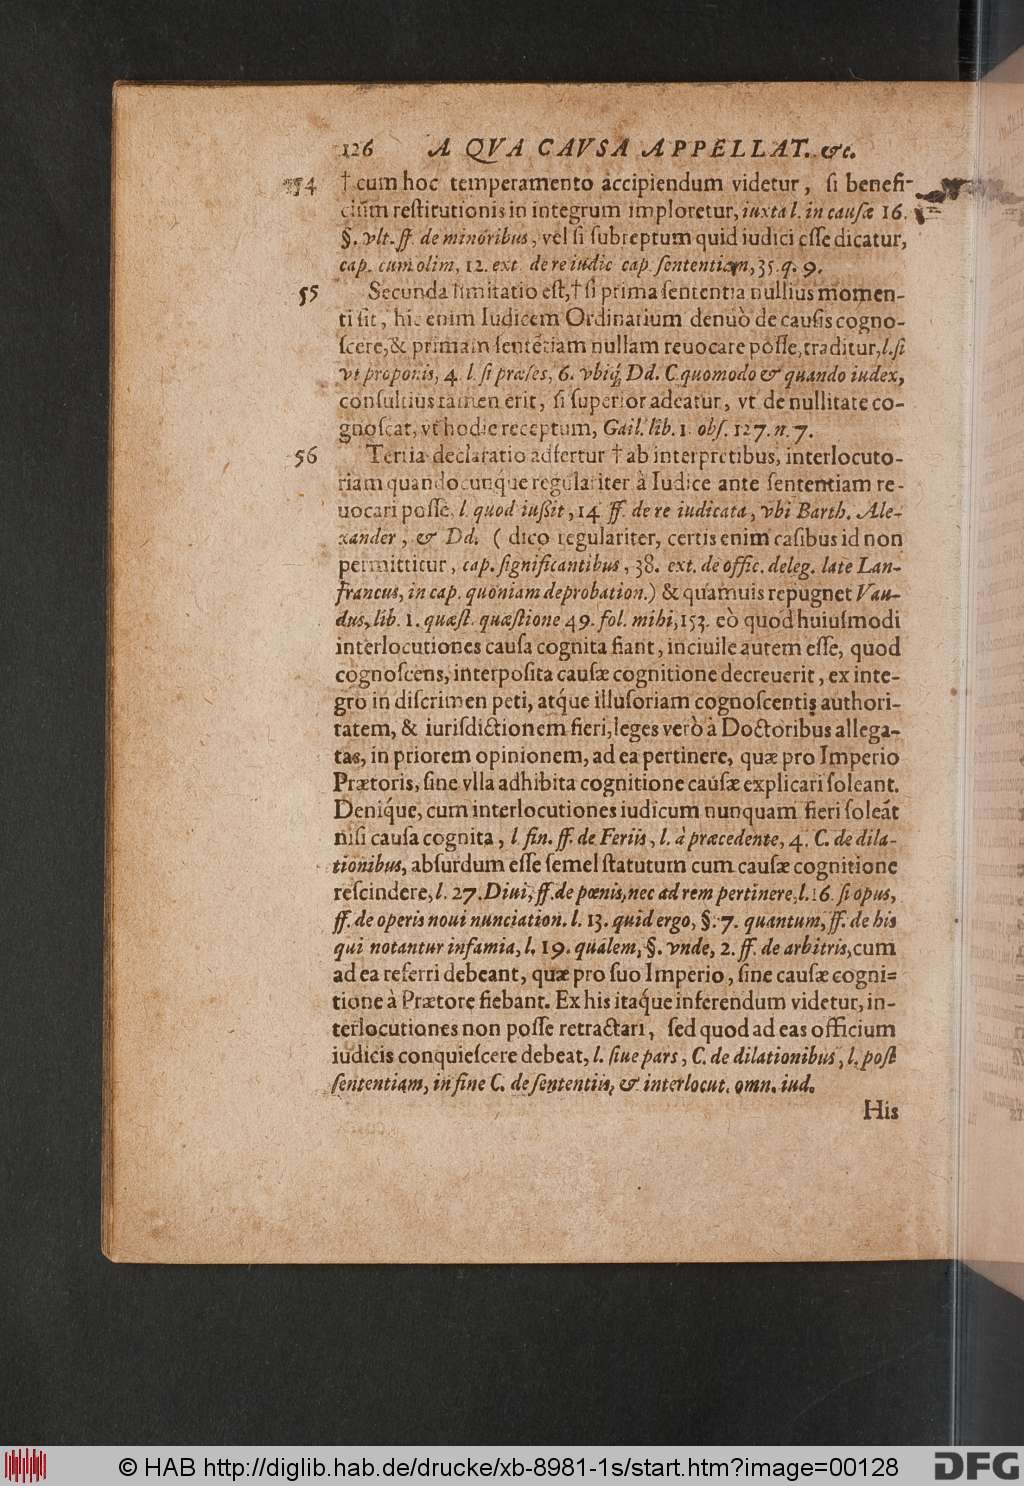 126 A QVA CAVSA APPELLAT. &c.
54 † cum hoc temperamento accipiendum videtur, ſi benefi-
cium reſtitutionis in integrum imploretur, iuxta l. in cauſæ 16.
§. vlt. ff. de minoribus, vel ſi ſubreptum quid iudici eſſe dicatur,
cap. cum olim, 12. ext de re iudic cap. ſententiam, 35. q. 9.
55 Secunda limitatio eſt, † ſi prima ſententia nullius momen-
ti ſit, hic enim Iudicem Ordinarium denuò de cauſis cogno-
ſcere, & primam ſentētiam nullam reuocare poſſe, traditur, l. ſi
vt proponis, 4. l. ſi præſes, 6. vbiq; Dd. C. quomodo & quando iudex,
conſultius tamen erit, ſi ſuperior adeatur, vt de nullitate co-
gnoſcat, vt hodie receptum, Gail. lib. 1. obſ. 127. n. 7.
56 Tertia declaratio adfertur † ab interpretibus, interlocuto-
riam quandocunq́ue regulariter à Iudice ante ſententiam re-
uocari poſſe, l. quod iuſsit, 14 ff. de re iudicata, vbi Barth. Ale-
xander, & Dd. ( dico regulariter, certis enim caſibus id non
permittitur, cap. ſignificantibus, 38. ext. de offic. deleg. latè Lan-
francus, in cap. quoniam de probation.) & quamuis repugnet Vau-
dus, lib. 1. quæſt. quæſtione 49. fol. mihi, 153. eò quód huiuſmodi
interlocutiones cauſa cognita fiant, inciuile autem eſſe, quod
cognoſcens, interpoſita cauſæ cognitione decreuerit, ex inte-
gro in diſcrimen peti, atq́ue illuſoriam cognoſcentis authori-
tatem, & iuriſdictionem fieri, leges verò à Doctoribus allega-
tas, in priorem opinionem, ad ea pertinere, quæ pro Imperio
Prætoris, ſine vlla adhibita cognitione cauſæ explicari ſoleant.
Deniq́ue, cum interlocutiones iudicum nunquam fieri ſoleāt
niſi cauſa cognita, l. fin. ff. de Feriis, l. à præcedente, 4. C. de dila-
tionibus, abſurdum eſſe ſemel ſtatutum cum cauſæ cognitione
reſcindere, l. 27. Diui, ff. de pœnis, nec ad rem pertinere, l. 16. ſi opus,
ff. de operis noui nunciation. l. 13. quid ergo, §. 7. quantum, ff. de his
qui notantur infamia, l. 19. qualem, §. vnde, 2. ff. de arbitris, cum
ad ea referri debeant, quæ pro ſuo Imperio, ſine cauſæ cogni-
tione à Prætore fiebant. Ex his itaq́ue inferendum videtur, in-
terlocutiones non poſſe retractari, ſed quod ad eas officium
iudicis conquieſcere debeat, l. ſiue pars, C. de dilationibus, l. poſt
ſententiam, in fine C. de ſententiis, & interlocut. omn. iud.
His
© HAB http://diglib.hab.de/drucke/xb-8981-1s/start.htm?image=00128
DFG